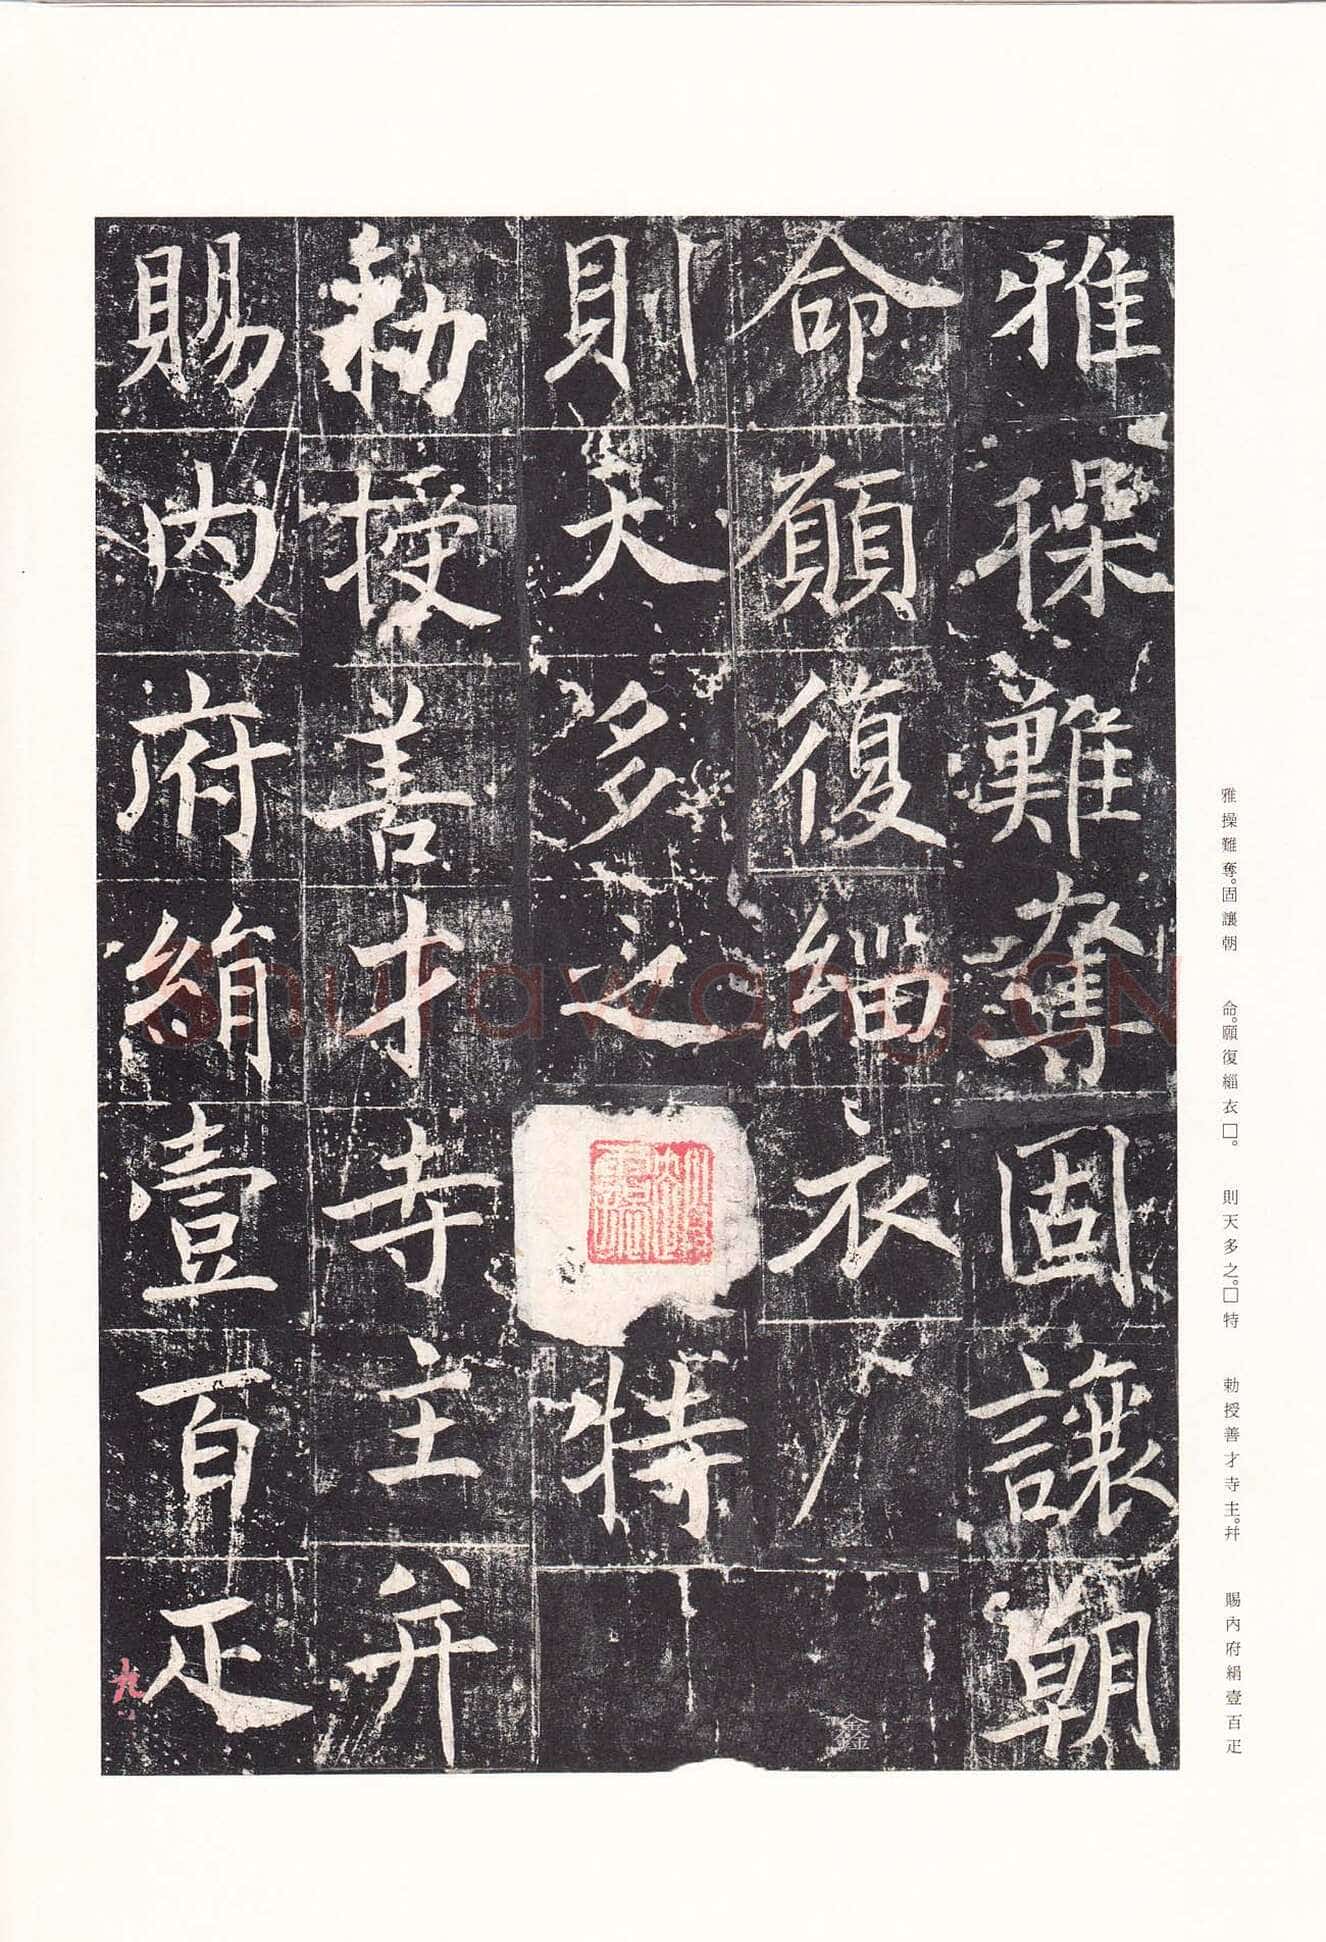 雅操難奪固讓朝
命願復緇衣
則天多之
特
勅授善才寺主并
賜內府絹壹百疋
九
鑫
雅操難奪。固讓朝
命。願復緇衣□。
則天多之。□特
勅授善才寺主。幷
賜內府絹壹百疋
Shufawang.CN